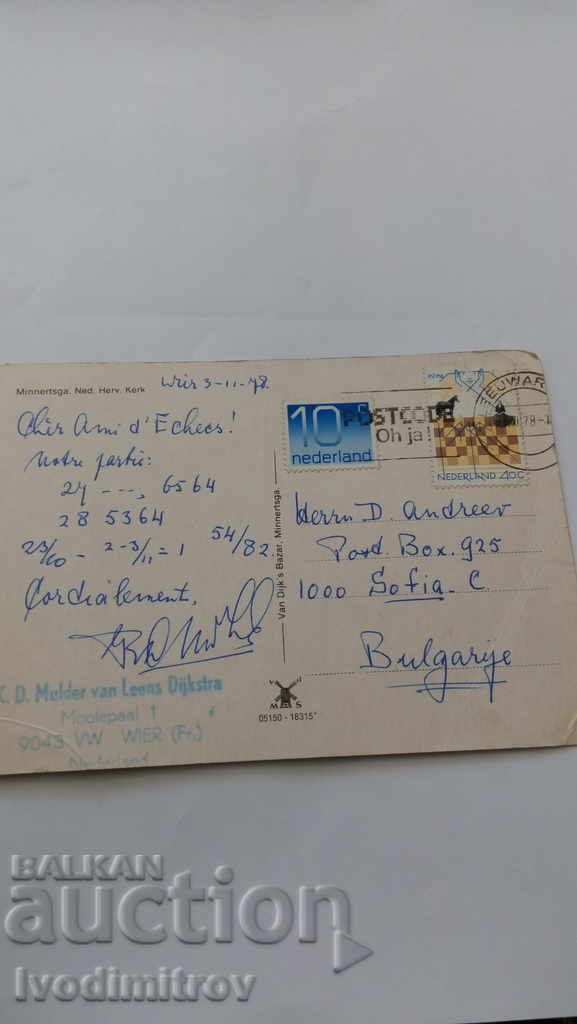 Minnertsga. Ned. Herv. Kerk
Wier 3-11-78
Chèr Ami d'Echecs!
Notre partie:
27 ---, 6564
28 5364
23/10 - 2-3/11 = 1 54/82
Cordialement,
K. D. Mulder van Leens Dijkstra
Moolepaal 1
9043 VW WIER (Fr.)
Nederland
Van Dijk's Bazar, Minnertsga
05150 - 18315*
10
nederland
POSTCODE
Oh ja!
NEDERLAND 40c
Herrn D. Andreev
Post. Box. 925
1000 Sofia-C.
Bulgarije
BALKAN
auction
Ivodimitrov